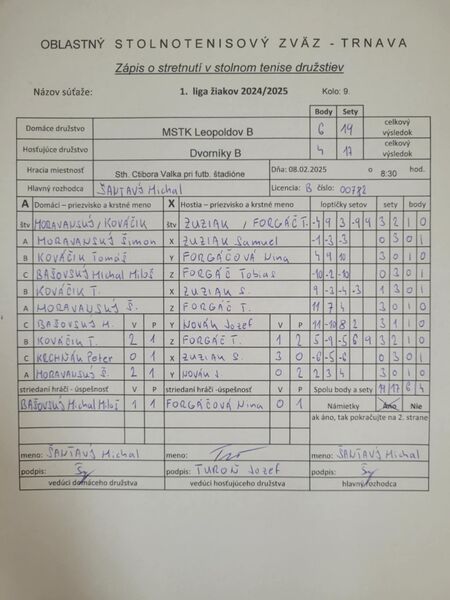 OBLASTNÝ STOLNOTENISOVÝ ZVÄZ - TRNAVA
Zápis o stretnutí v stolnom tenise družstiev
Názov súťaže: 1. liga žiakov 2024/2025 Kolo: 9.
Body Sety
Domáce družstvo MSTK Leopoldov B 6 19 celkový výsledok
Hosťujúce družstvo Dvorníky B 4 17 celkový výsledok
Hracia miestnosť Sth. Ctibora Valka pri futb. štadióne Dňa: 08.02.2025 o 8:30 hod.
Hlavný rozhodca ŠANTAVÝ Michal Licencia: B číslo: 00782
A Domáci – priezvisko a krstné meno X Hostia – priezvisko a krstné meno loptičky setov sety body
štv MORAVANSKÝ / KOVÁČIK štv ZUZIAK / FORGÁČ T. -9 9 3 -9 9 3 2 1 0
A MORAVANSKÝ Šimon X ZUZIAK Samuel -1 -3 -3 0 3 0 1
B KOVÁČIK Tomáš Y FORGÁČOVÁ Nina 4 9 10 3 0 1 0
C BAŠOVSKÝ Michal Miloš Z FORGÁČ Tobias -10 -2 -10 0 3 0 1
B KOVÁČIK T. X ZUZIAK S. 9 -3 -4 -3 1 3 0 1
A MORAVANSKÝ Š. Z FORGÁČ T. 11 7 4 3 0 1 0
C BAŠOVSKÝ M. V P Y NOVÁK Jozef V P 11 -10 8 2 3 1 1 0
B KOVÁČIK T. 2 1 Z FORGÁČ T. 1 2 5 -9 -5 6 9 3 2 1 0
C KRCHNÁK Peter 0 1 X ZUZIAK S. 3 0 -6 -5 -6 0 3 0 1
A MORAVANSKÝ Š. 2 1 Y NOVÁK J. 0 2 2 3 4 3 0 1 0
striedaní hráči - úspešnosť V P striedaní hráči -úspešnosť V P Spolu body a sety 19 17 6 4
BAŠOVSKÝ Michal Miloš 1 1 FORGÁČOVÁ Nina 0 1 Námietky Áno Nie
ak áno, tak pokračujte na 2. strane
meno: ŠANTAVÝ Michal meno: meno: ŠANTAVÝ Michal
podpis: podpis: TUROŇ Jozef podpis:
vedúci domáceho družstva vedúci hosťujúceho družstva hlavný rozhodca